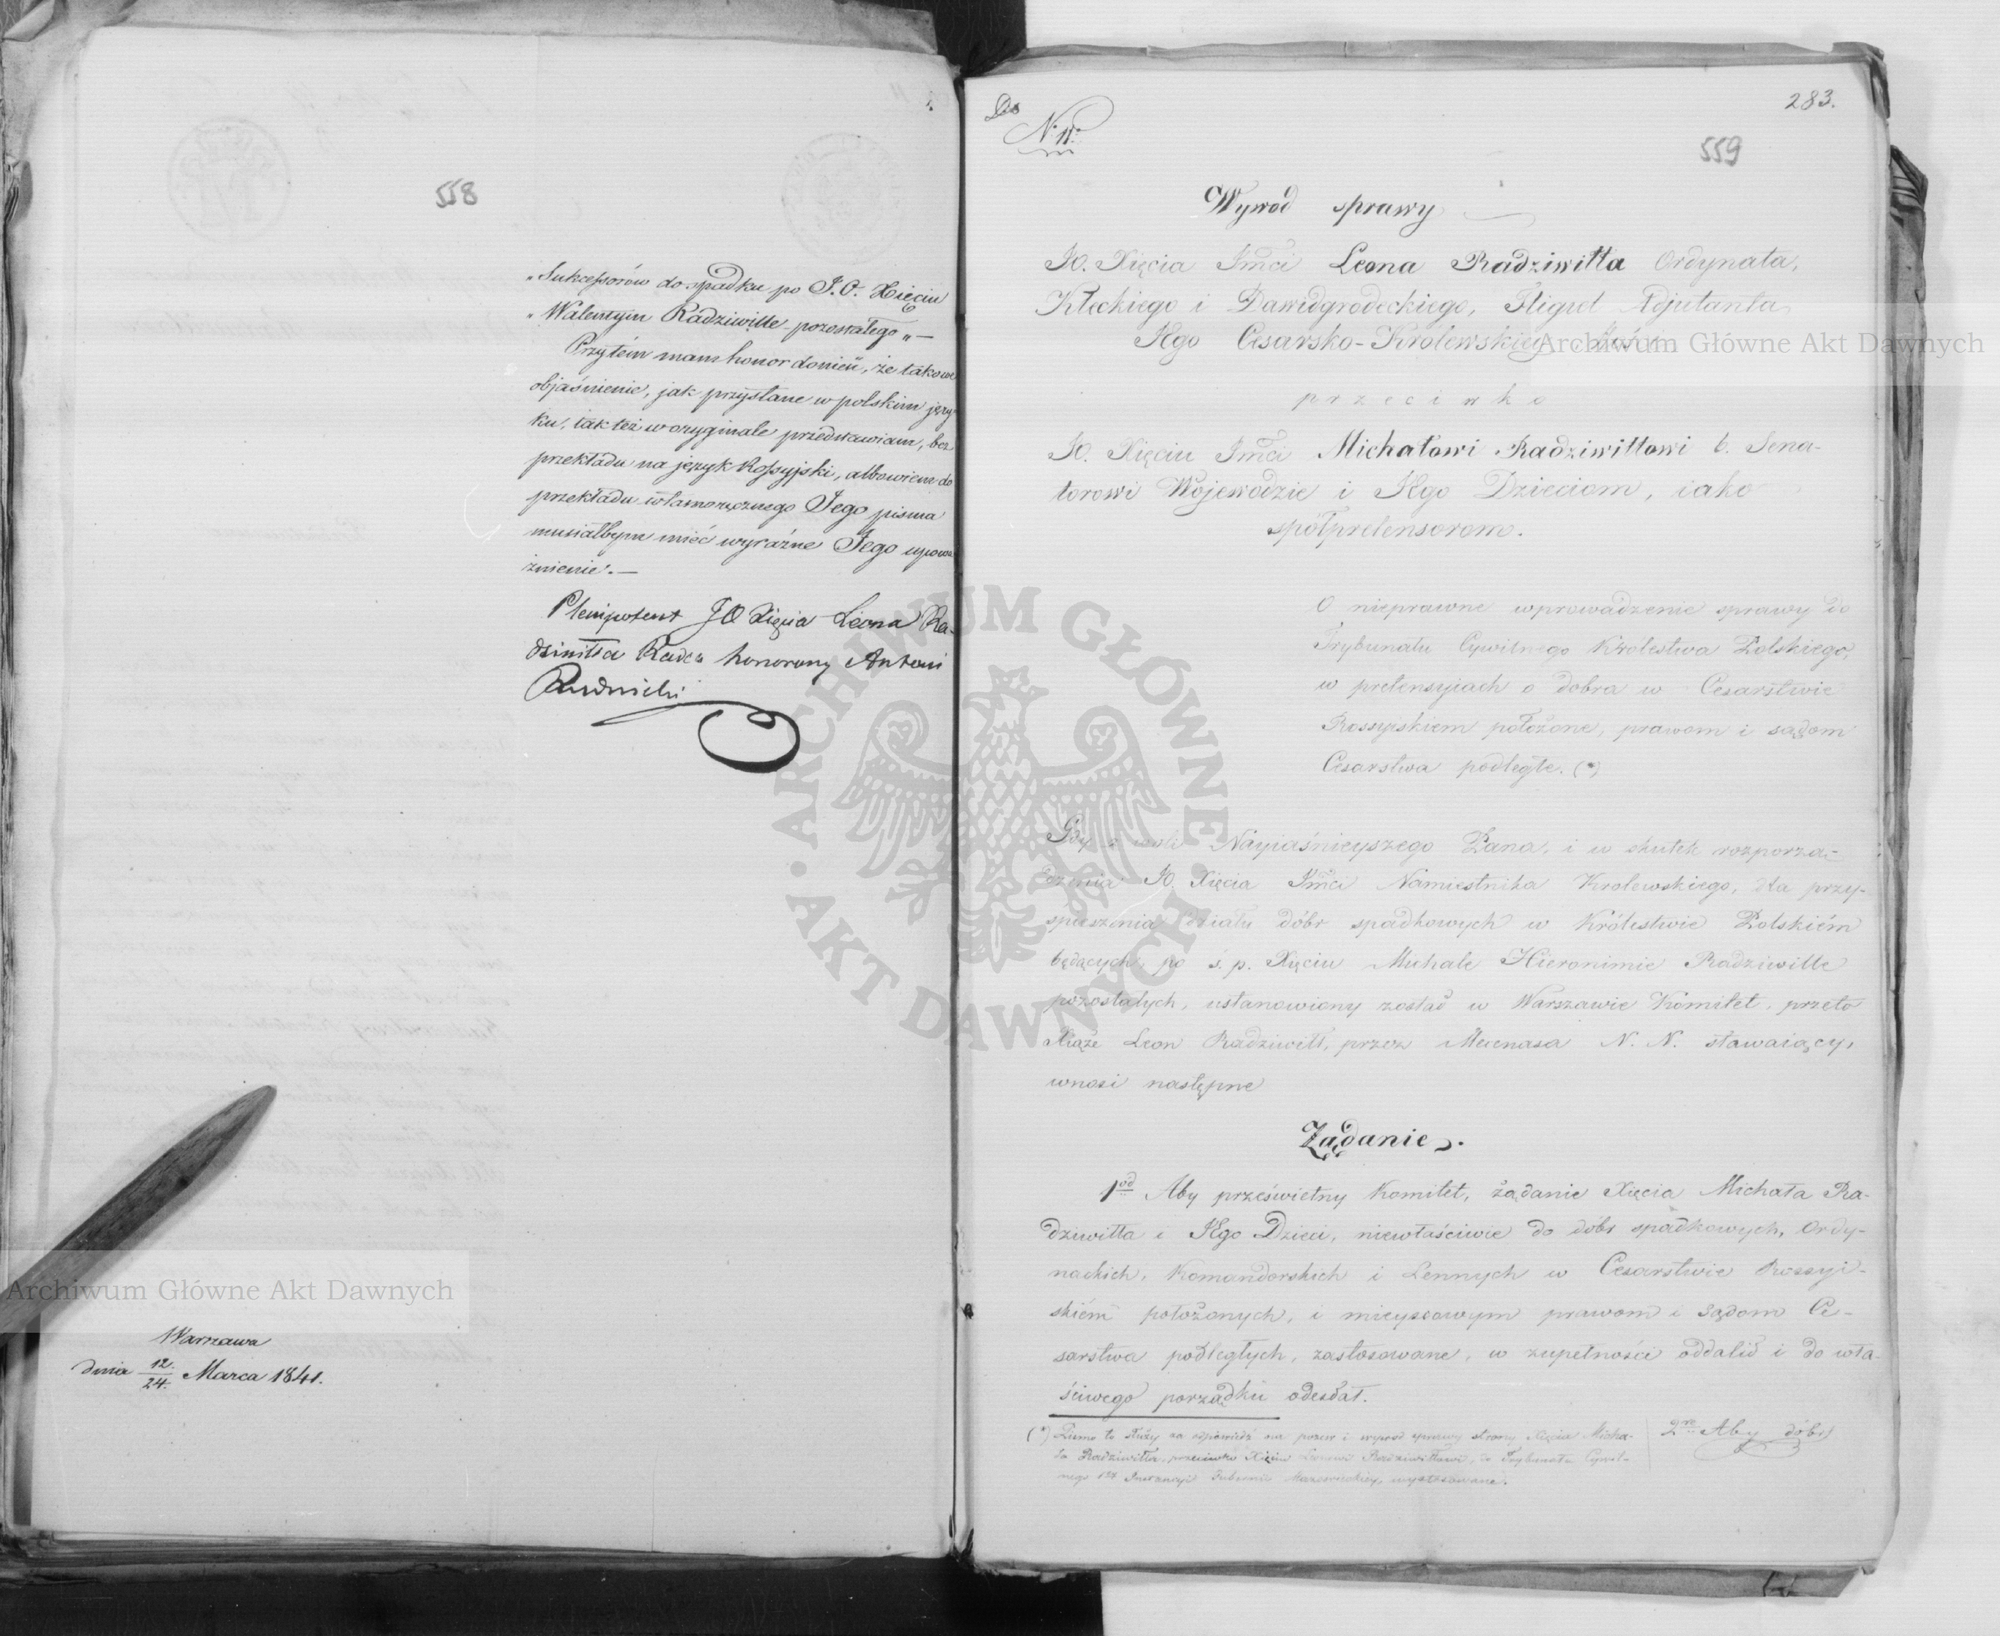 558
„Sukcessorów do spadku po J.O. Xięciu
„Walentym Radziwille pozostałego„ —
Przytém mam honor donieść, że takowe
objaśnienie, jak przysłane w polskim języ-
ku, tak też w oryginale przedstawiam, bez
przekładu na język Rossyjski, albowiem do
przekładu własnoręcznego Jego pisma
musiałbym mieć wyraźne Jego upowa-
żnienie. —
Plenipotent JO Xięcia Leona Ra-
dziwiłła Radca honorowy Antoni
Rudnicki
Warszawa
dnia 12/24. Marca 1841.
Do
N. 11.
283.
559
Wywod sprawy
JO. Xięcia Jmci Leona Radziwiłła Ordynata,
Kleckiego i Dawidgrodeckiego, Fligiel Adjutanta
JEgo Cesarsko-Krolewskiey Mości
przeciwko
JO. Xięciu Jmci Michałowi Radziwiłłowi b. Sena-
torowi Wojewodzie i JEgo Dzieciom, iako
spółpretensorom.
O nieprawne wprowadzenie sprawy do
Trybunału Cywilnego Królestwa Polskiego,
w pretensyiach o dobra w Cesarstwie
Rossyiskiem położone, prawom i sądom
Cesarstwa podległe. (*)
Gdy z woli Nayiaśnieyszego Pana, i w skutek rozporzą-
dzenia JO. Xięcia Jmci Namiestnika Krolewskiego, dla przy-
spieszenia działu dóbr spadkowych w Królestwie Polskiém
będących, po ś. p. Xięciu Michale Hieronimie Radziwille
pozostałych, ustanowiony został w Warszawie Komitet, przeto
Xiąże Leon Radziwiłł, przez Mecenasa N. N. stawaiący,
wnosi następne
Żądanie.
1od Aby prześwietny Komitet, żądanie Xięcia Michała Ra-
dziwiłła i JEgo Dzieci, niewłaściwie do dóbr spadkowych, Ordy-
nackich, Komandorskich i Lennych w Cesarstwie Rossyi-
skiém położonych, i mieyscowym prawom i Sądom Ce-
sarstwa podległych, zastosowane, w zupełności oddalił i do wła-
ściwego porządku odesłał.
(*) Pismo to służy za odpowiedź na pozew i wywod sprawy strony Xięcia Micha-
ła Radziwiłła, przeciwko Xięciu Leonowi Radziwiłłowi, do Trybunału Cywil-
nego 1ey Instancyi Gubernii Mazowieckiey, wystosowane.
2re Aby dóbr
Archiwum Główne Akt Dawnych
Archiwum Główne Akt Dawnych
ARCHIWUM GŁÓWNE • AKT DAWNYCH •